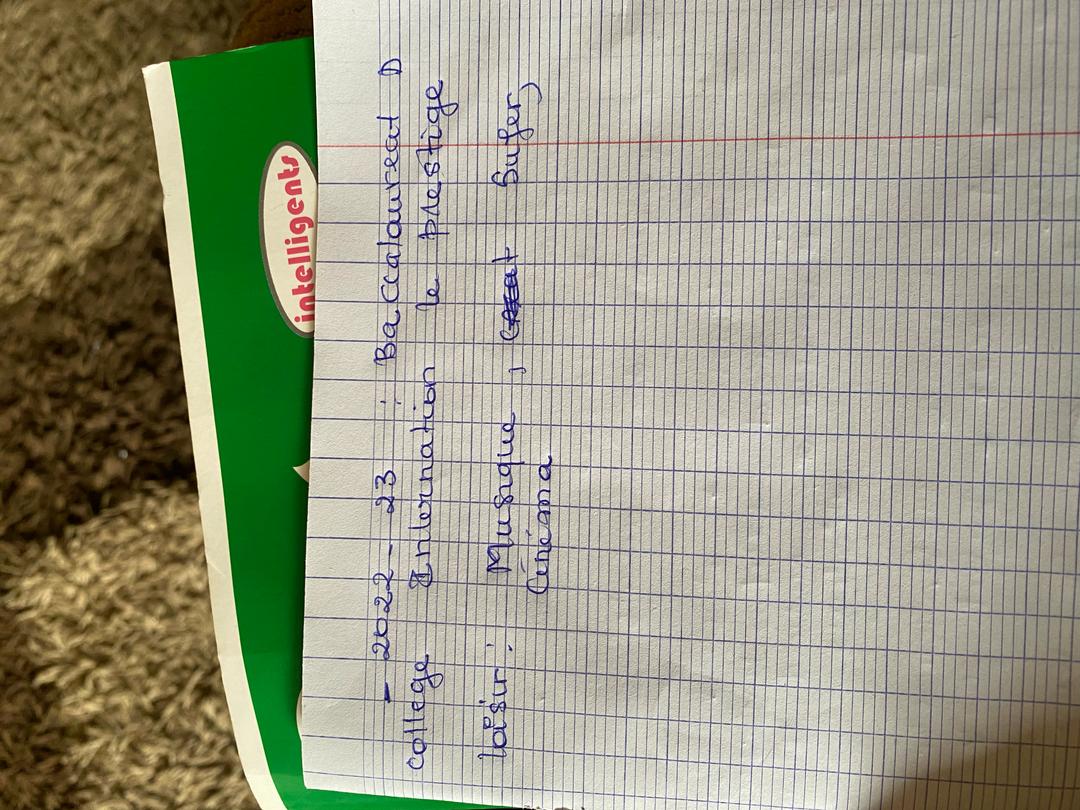 intelligents
- 2022-23 : Baccalaureat D
college Internation le prestige
loisir : Musique, Surfer,
Cinéma